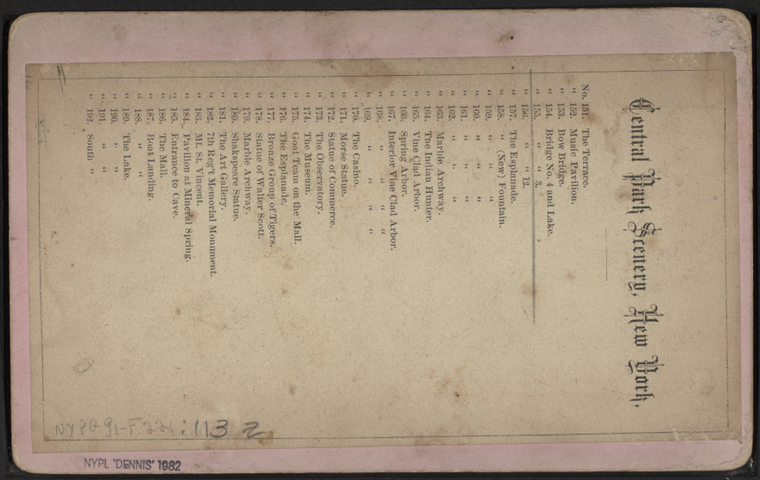 Central Park Scenery, New York.
No. 151. The Terrace.
" 152. Music Pavilion.
" 153. Bow Bridge.
" 154. Bridge No. 4 and Lake.
" 155. " " 3.
" 156. " " 12.
" 157. The Esplanade.
" 158. " (New) Fountain.
" 159. " "
" 160. " "
" 161. " "
" 162. " "
" 163. Marble Archway.
" 164. The Indian Hunter.
" 165. Vine Clad Arbor.
" 166. Spring Arbor.
" 167. Interior Vine Clad Arbor.
" 168. " " " "
" 169. " " " "
" 170. The Casino.
" 171. Morse Statue.
" 172. Statue of Commerce.
" 173. The Observatory.
" 174. The Museum.
" 175. Goat Team on the Mall.
" 176. The Esplanade.
" 177. Bronze Group of Tigers.
" 178. Statue of Walter Scott.
" 179. Marble Archway.
" 180. Shakspeare Statue.
" 181. The Art Gallery.
" 182. 7th Reg't Memorial Monument.
" 183. Mt. St. Vincent.
" 184. Pavilion at Mineral Spring.
" 185. Entrance to Cave.
" 186. The Mall.
" 187. Boat Landing.
" 188. " "
" 189. The Lake.
" 190. " "
" 191. " "
" 192. South "
NYPG 91-F221:113 Z
NYPL "DENNIS" 1982